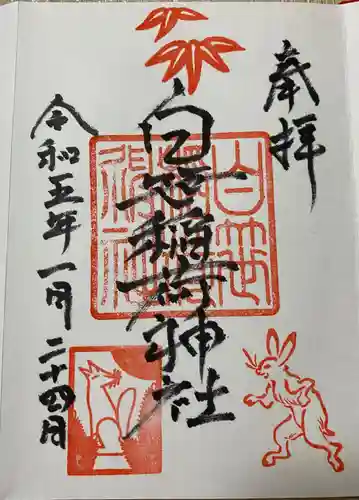 奉拝
白笹稲荷神社
令和五年一月二十四日
白笹稲荷神社